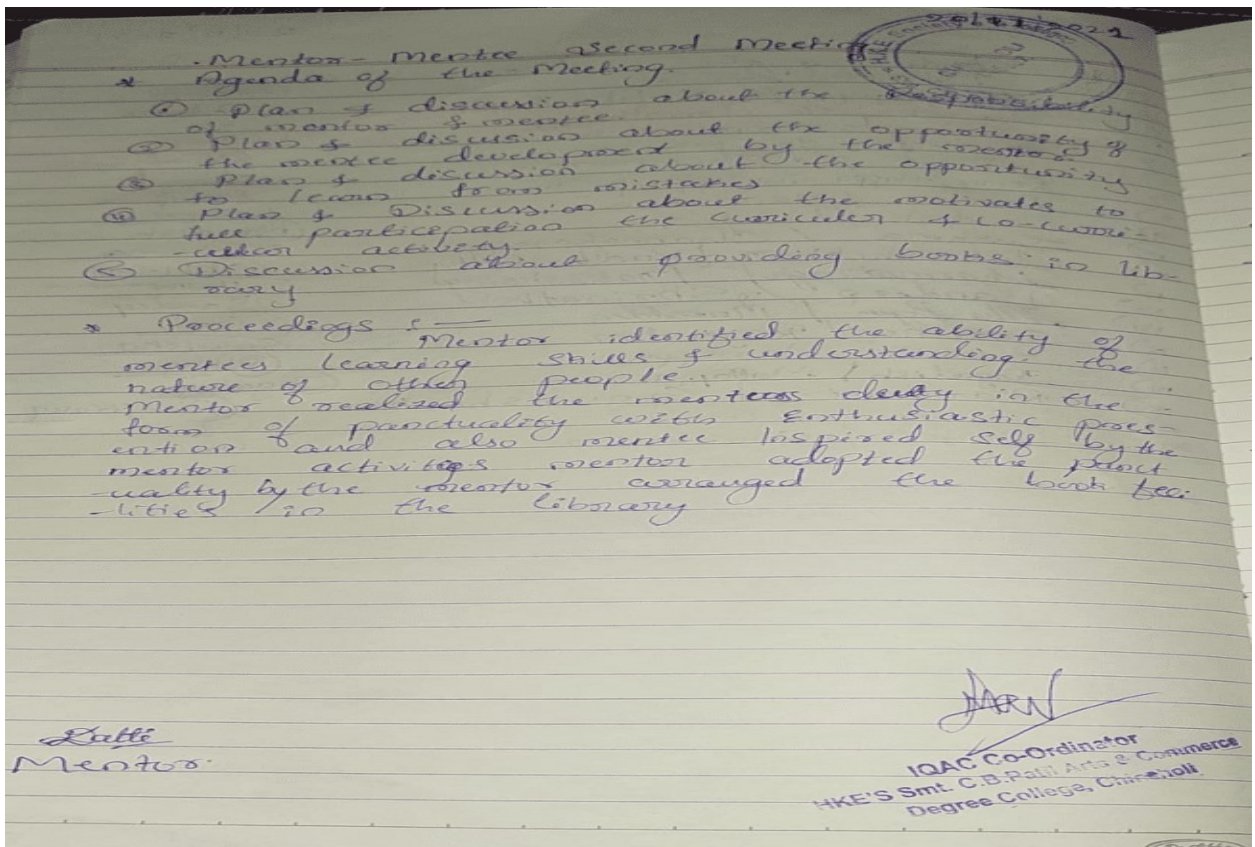 Mentor - Mentee Second Meeting
* Agenda of the Meeting.
① Plan & discussion about the
of mentor & mentee.
② Plan & discussion about the opportunity of
the mentee development by the mentor
③ Plan & discussion about the opportunity
to learn from mistakes
④ Plan & Discussion about the motivates to
full participation the curriculer & co-curri-
activity.
⑤ Discussion about providing books in lib-
rary
* Proceedings :-
Mentor identified the ability of
mentees learning skills & understanding the
nature of other people.
Mentor realized the mentees in the
form of punctuality with Enthusiastic pres-
ention and also mentee Inspired self by the
mentor activities mentor adopted the punct
-uality by the mentor arranged the book faci
-lities in the library
Mentor.
IQAC Co-Ordinator
HKE'S Smt. C.B.Patil Arts & Commerce
Degree College, Chincholi